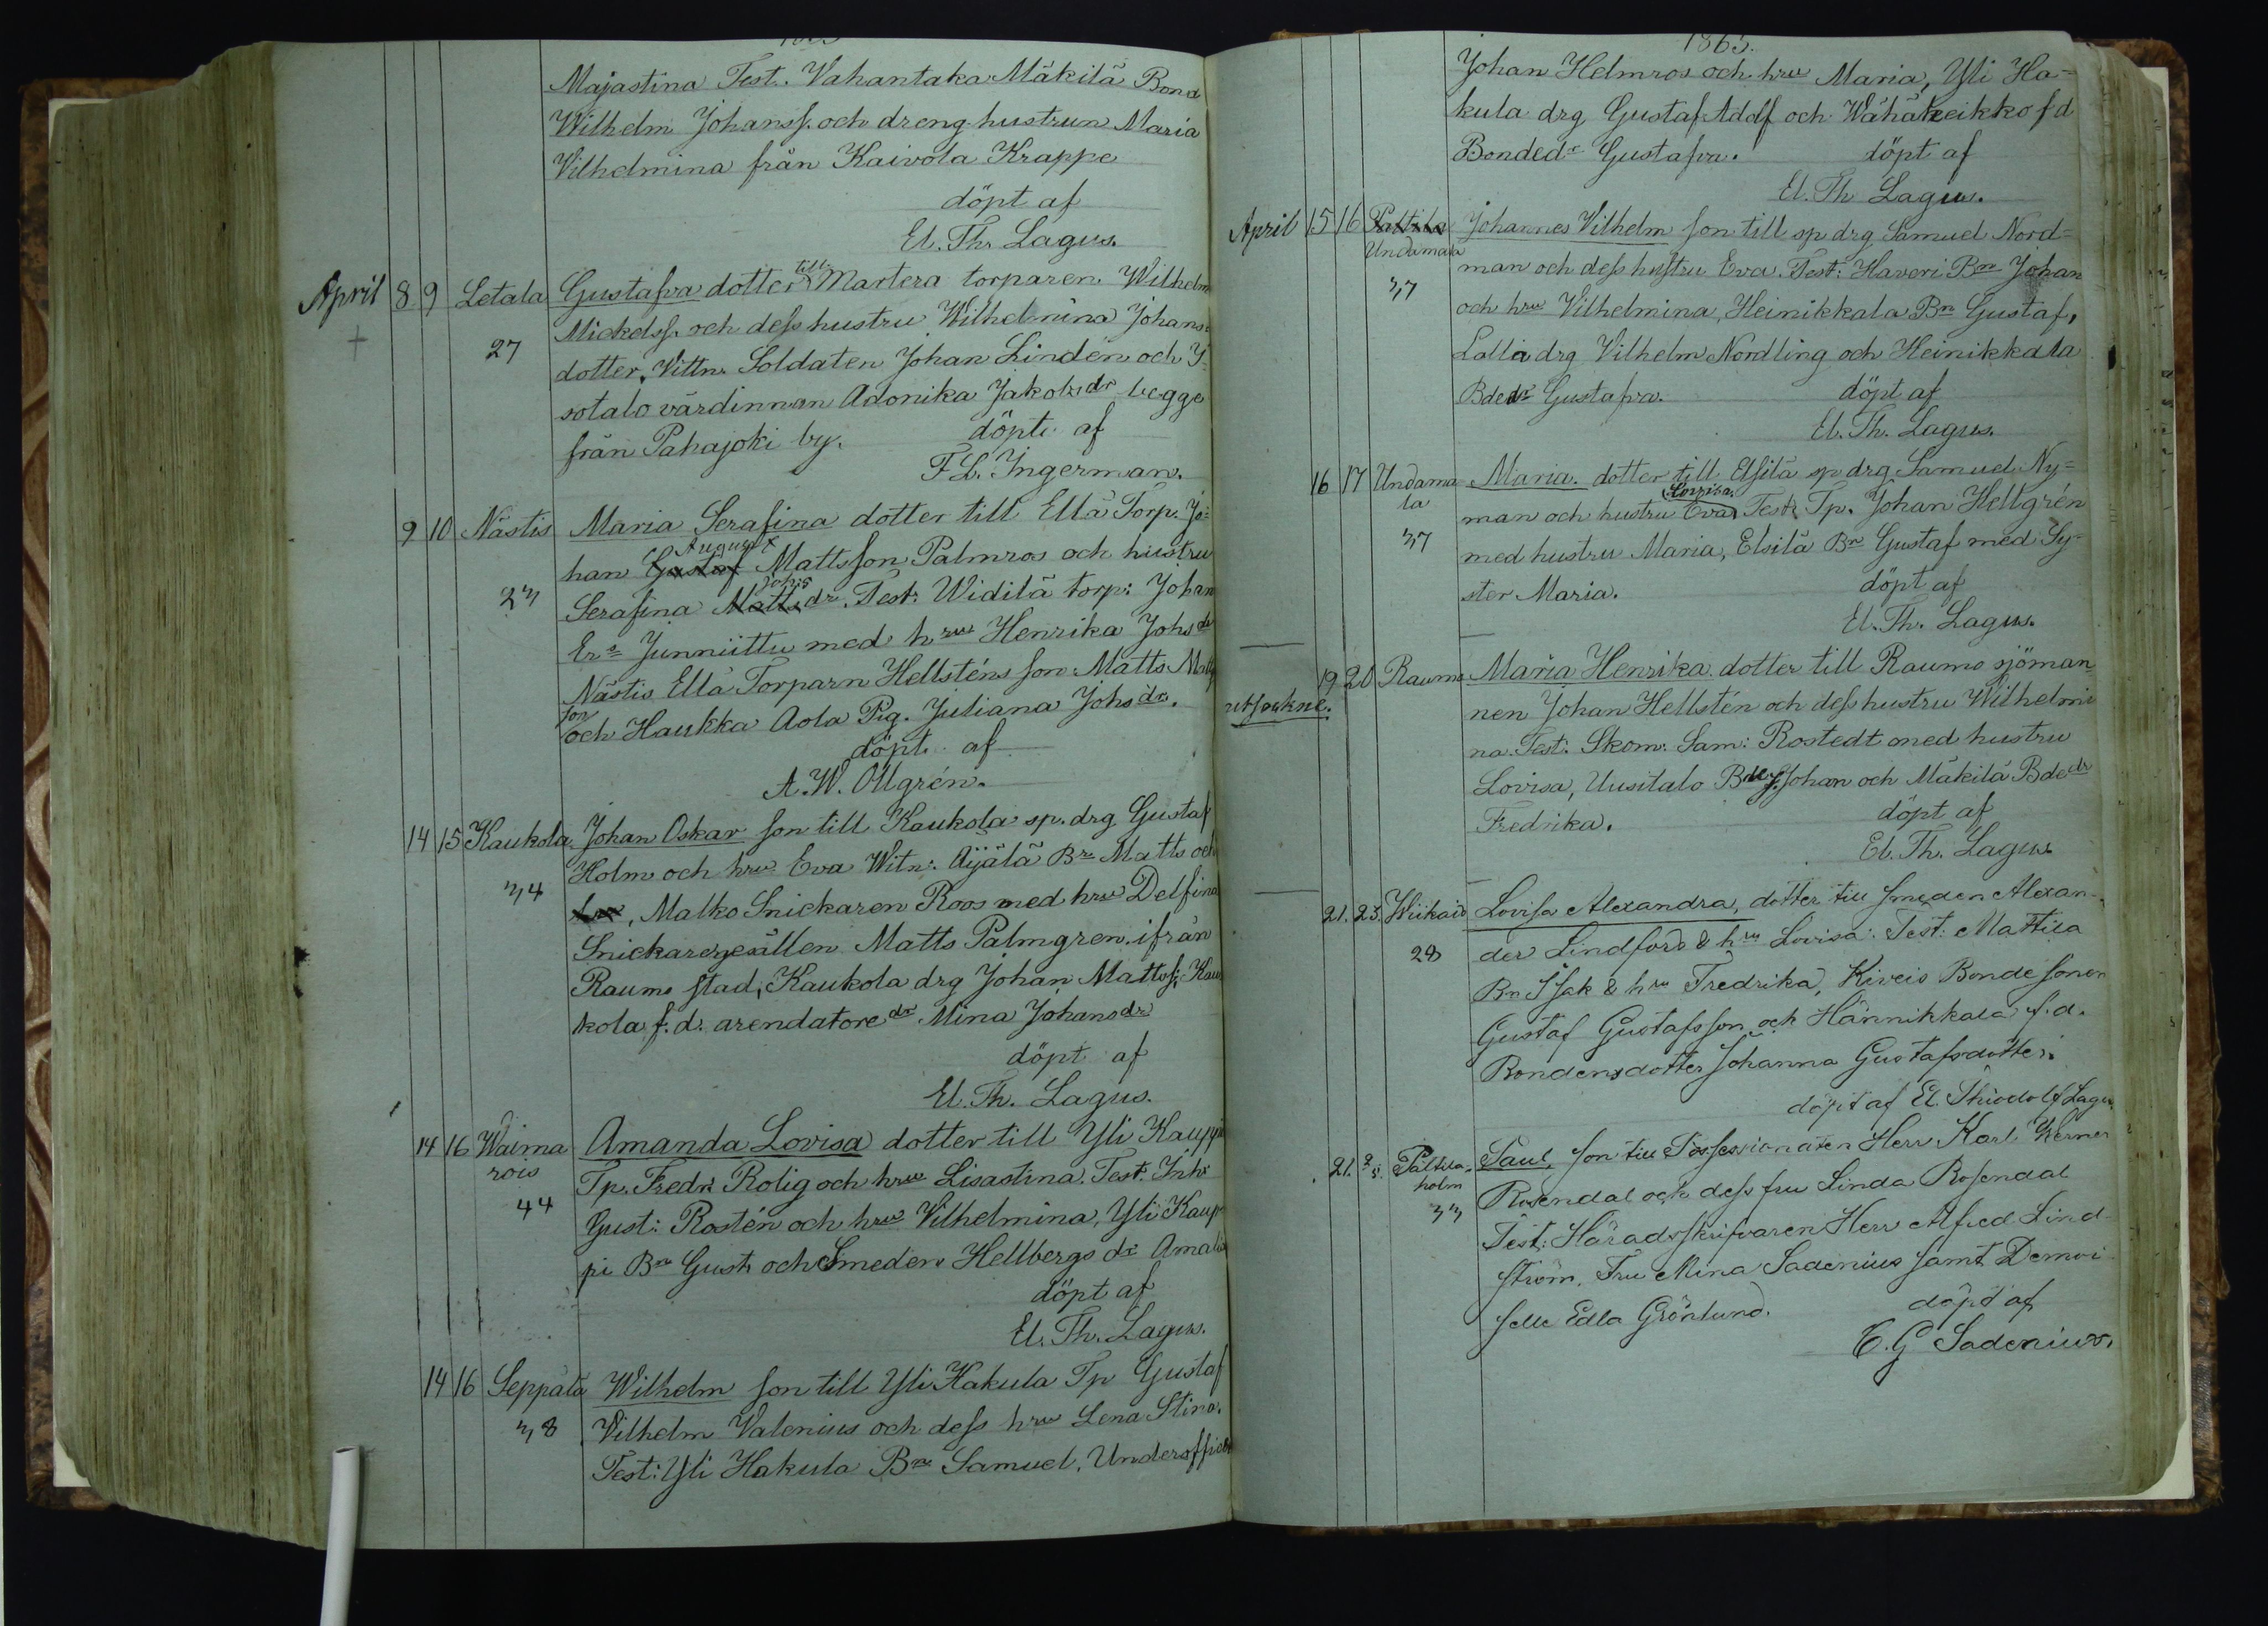 Majastina Test. Vahantaka Mäkilä Bond
Wilhelm Johanss. och dreng hustrun Maria
Vilhelmina från Kaivola Krappe
döpt af
El. Th. Lagus.
April 8 9 Letala Gustafva dotter till Martera torparen Wilhelm
Mickelss. och dess hustru Wilhelmina Johans-
27
dotter, Vittn. Soldaten Johan Lindén och Y-
sotalo värdinnan Adonika Jakobsdr begge
från Pahajoki by. döpt af
F L. Ingerman.
9 10 Nästis Maria Serafina dotter till Ellä Torp. Jo-
han Gustaf August Mattsson Palmros och hustru
23 Serafina Mattsdr Johs Test: Widilä torp: Johan
Ers Junniittu med hru Henrika Johsdr
Nästis Ellä Torparn Hellsténs son Matts Matts
son och Haukka Aola Pig. Juliana Johsdr.
döpt af
A. W. Ollgrén.
14 15 Kaukola Johan Oskar son till Kaukola sp. drg Gustaf
Holm och hru Eva Witn: Äijälä Bn Matts och
34 , Malko Snickaren Roos med hru Delfina
Snickaregesällen Matts Palmgren ifrån
Raumo stad, Kaukola drg Johan Mattss, Kau
kola f. d. arendatoredr Mina Johansdr
döpt af
El. Th. Lagus.
14 16 Waima Amanda Lovisa dotter till Yli Kauppi
rois Tp. Fredr. Rolig och hru Lisastina. Test. Inh.
44 Gust: Rostén och hru Vilhelmina, Yli Kaup
pi Bn Gust. och Smeden Hellbergs dr Amalia
döpt af
El. Th. Lagus.
14 16 Seppälä Wilhelm son till Yli Hakula Tp Gustaf
38 Vilhelm Valenius och dess hru Lena Stina.
Test: Yli Hakula Bn Samuel, Underofficer
1865.
Johan Helmros och hru Maria, Yli Ha-
kula drg Gustaf Adolf och Wähäheikko fd
Bondedr Gustafva. döpt af
El. Th Lagus.
April 15 16 Paltila Johannes Vilhelm son till sp drg Samuel Nord-
Undamala man och dess hustru Eva. Test: Haveri Bn Johan
37 och hru Vilhelmina, Heinikkala Bn Gustaf,
Lalla drg Vilhelm Nordling och Heinikkala
Bdedr Gustafva. döpt af
El. Th. Lagus.
16 17 Undama Maria. dotter till Elsilä sp drg Samuel Ny-
la man och hustru Eva Lovisa. Test. Tp. Johan Hellgrén
37 med hustru Maria, Elsilä Bn Gustaf med Sy-
ster Maria. döpt af
El. Th. Lagus.
19 20 Raumo Maria Henrika dotter till Raumo sjöman
utsockne. nen Johan Hellstén och dess hustru Wilhelmi
na. Test: Skom. Sam: Rostedt med hustru
Lovisa, Uusitalo Johan och Mäkilä Bdedr
Fredrika. döpt af
El. Th. Lagus
21. 23. Wiikais Lovisa Alexandra, dotter till smeden Alexan-
28 der Lindfors & hru Lovisa. Test: Mattila
Bn Isak & hru Fredrika, Kiveis Bondesonen
Gustaf Gustafsson och Hännikkala f. d.
Bondensdotter Johanna Gustafsdotter.
döpt af El. Thiodolf Lagus
21. Paltila- Paul, son till Possessionaten Herr Karl Werner
holm Rosendal och dess fru Linda Rosendal
33 Test: Häradsskrifvaren Herr Alfred Lind-
ström, Fru Mina Sadenius samt Demoi
selle Edla Grönlund. döpt af
C. G Sadenius.